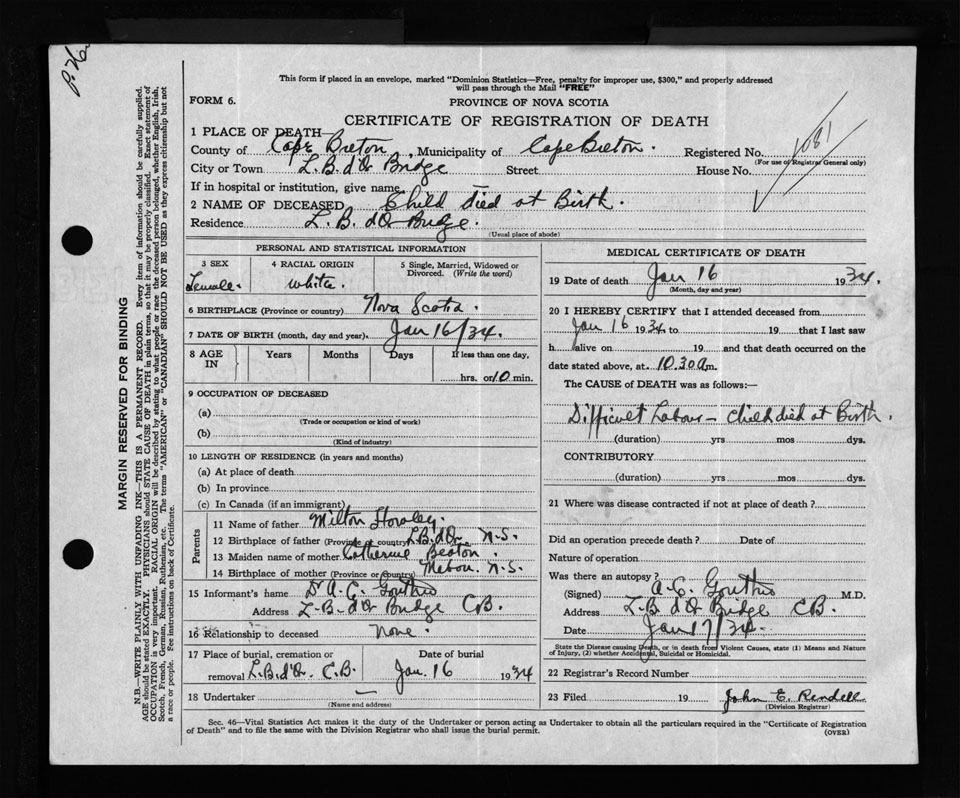 P. 76
This form if placed in an envelope, marked "Dominion Statistics—Free, penalty for improper use, $300," and properly addressed
will pass through the Mail "FREE"
FORM 6. PROVINCE OF NOVA SCOTIA
CERTIFICATE OF REGISTRATION OF DEATH
1081
1 PLACE OF DEATH—
County of Cape Breton, Municipality of Cape Breton. Registered No.
(For use of Registrar General only)
City or Town L.B. d'Or Bridge Street House No.
If in hospital or institution, give name
2 NAME OF DECEASED Child died at Birth.
Residence L. B. d'Or Bridge.
(Usual place of abode)
PERSONAL AND STATISTICAL INFORMATION
3 SEX 4 RACIAL ORIGIN 5 Single, Married, Widowed or
Divorced. (Write the word)
Female. White.
6 BIRTHPLACE (Province or country) Nova Scotia.
7 DATE OF BIRTH (month, day and year) Jan 16/34.
8 AGE IN Years Months Days If less than one day,
hrs. or 10 min.
9 OCCUPATION OF DECEASED
(a)
(Trade or occupation or kind of work)
(b)
(Kind of industry)
10 LENGTH OF RESIDENCE (in years and months)
(a) At place of death
(b) In province
(c) In Canada (if an immigrant)
Parents
11 Name of father Milton
12 Birthplace of father (Province or country) L.B. d'Or. N.S.
13 Maiden name of mother Catherine Beaton.
14 Birthplace of mother (Province or country) Mabou. N.S.
15 Informant's name Dr A. C.
Address L.B. d'Or Bridge C.B.
16 Relationship to deceased None.
17 Place of burial, cremation or Date of burial
removal L.B. d'Or. C.B. Jan. 16 1934
18 Undertaker —
(Name and address)
MEDICAL CERTIFICATE OF DEATH
19 Date of death Jan 16 1934.
(Month, day and year)
20 I HEREBY CERTIFY that I attended deceased from
Jan 16 1934 to 19 that I last saw
h alive on 19 and that death occurred on the
date stated above, at 10.30 a m.
The CAUSE of DEATH was as follows:—
Difficult Labour - Child died at Birth.
(duration) yrs mos dys.
CONTRIBUTORY
(duration) yrs mos dys.
21 Where was disease contracted if not at place of death?
Did an operation precede death? Date of
Nature of operation
Was there an autopsy?
(Signed) A. C. M.D.
Address L.B. d'Or Bridge C.B.
Date Jan 17/34.
State the Disease causing Death, or in death from Violent Causes, state (1) Means and Nature
of Injury, (2) whether Accidental, Suicidal or Homicidal.
22 Registrar's Record Number
23 Filed 19 John E. Rendell
(Division Registrar)
Sec. 46—Vital Statistics Act makes it the duty of the Undertaker or person acting as Undertaker to obtain all the particulars required in the "Certificate of Registration
of Death" and to file the same with the Division Registrar who shall issue the burial permit.
(OVER)
MARGIN RESERVED FOR BINDING
N.B.—WRITE PLAINLY WITH UNFADING INK—THIS IS A PERMANENT RECORD. Every item of information should be carefully supplied.
AGE should be stated EXACTLY. PHYSICIANS should STATE CAUSE OF DEATH in plain terms, so that it may be properly classified. Exact statement of
OCCUPATION is very important. RACIAL ORIGIN will be described by stating to what people or race the deceased person belonged, whether English, Irish,
Scotch, French, German, Russian, Ruthenian, etc. The terms "AMERICAN" or "CANADIAN" SHOULD NOT BE USED as they express citizenship but not
a race or people. See instructions on back of Certificate.